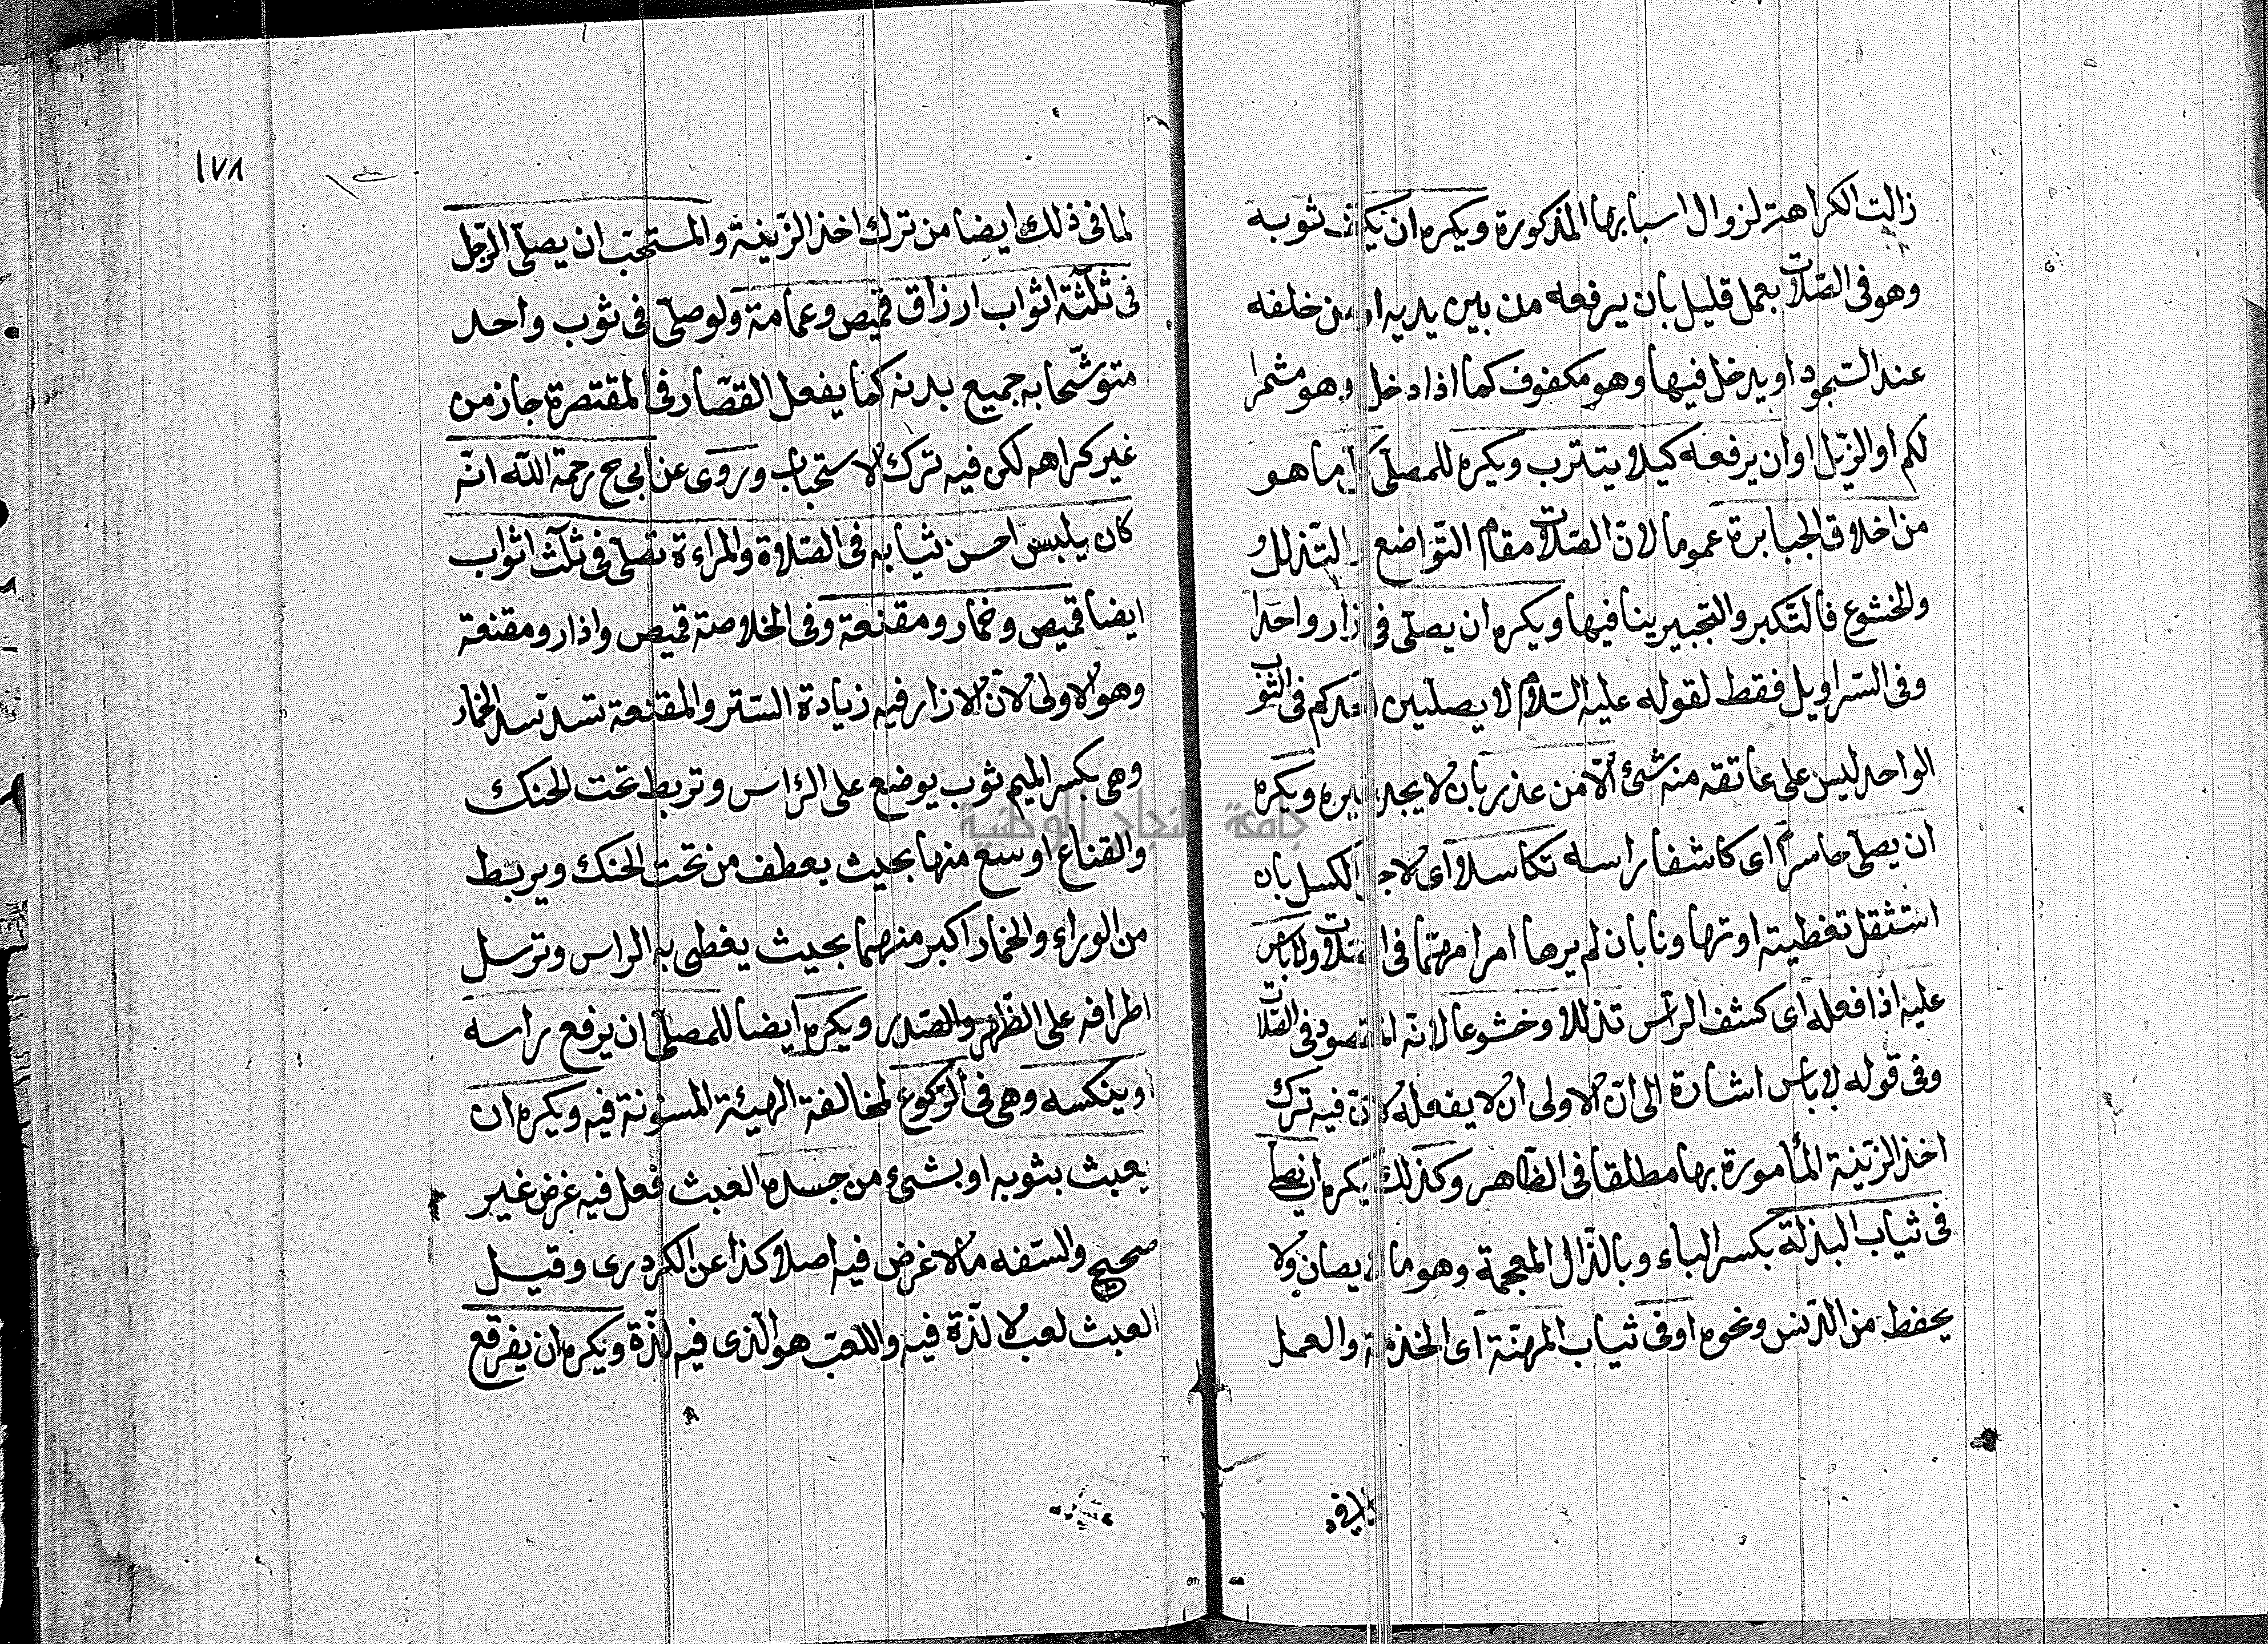 زالت الكراهة لزوال اسبابها المذكورة ويكره ان يكف ثوبه
وهو فى الصّلات بعمل قليل بان يرفعه من بين يديه او من خلفه
عند السّجود او يدخل فيها وهو مكفوف كما اذا دخل وهو مشمرا
لكم او الزّيل او ان يرفعه كيلا يتترب ويكره للمصلّى كل ما هو
من اخلاق الجبابرة عموما لانّ الصّلات مقام التّواضع والتّذلل
والخشوع فالتّكبر والتجبير ينافيها ويكره ان يصلّى فى ازار واحدا
وفى السّراويل فقط لقوله عليه السّلام لا يصلّين احدكم فى الثّوب
الواحد ليس على عاتقه منه شئ الّا من عذر بان لا يجد غيره ويكره
ان يصلّى حاسرًا اى كاشفا راسه تكاسلا اى لاجل الكسل بان
استثقل تغطيته او تهاونا بان لم يرها امرا مهمّا فى الصّلات ولا باس
عليه اذا فعله اى كشف الرّاس تذللا وخشوعا لانّه المقصود فى الصّلات
وفى قوله لا باس اشارة الى انّ الاولى ان لا يفعله لانّ فيه ترك
اخذ الزّينة المأمورة بها مطلقا فى الظّاهر وكذلك يكره ان يصلّى
فى ثياب البذلة بكسر الباء وبالذّال المعجمة وهو ما لا يصان ولا
يحفظ من الدّنس ونحوه او فى ثياب المهنّة اى الخذمة والعمل
١٧٨
لما فى ذلك ايضا من ترك اخذ الزّينة والمستحبّ ان يصلّى الرّجل
فى ثلثة اثواب ارزاق قميص وعمامة ولو صلّى فى ثوب واحد
متوشّحا به جميع بدنه كما يفعل القصّار فى المقتصرة جاز من
غير كراهه لكن فيه ترك الاستحباب وروى عن ابى ح رحمة اللّه انّه
كان يلبس احسن ثيابه فى الصّلاوة والمراءة تصلّى فى ثلٰث اثواب
ايضا قميص وخمار ومقنعة وفى الخلاصة قميص واذار ومقنعة
وهو الاولى لانّ الازار فيه زيادة السّتر والمقنعة تسدّ تسد الخمار
وهى بكسر الميم ثوب يوضع على الرّاس وتربط تحت الحنك
والقناع اوسع منها بحيث يعطف من تحت الحنك ويربط
من الوراء والخمار اكبر منهما بحيث يغطى به الراس وترسل
اطرافه على الظّهر والصّدر ويكره ايضا للمصلّى ان يرفع راسه
او ينكسه وهى فى الرّكوع لمخالفة الهيئة المسنونة فيه ويكره ان
يعبث بثوبه او بشئ من جسده العبث فعل فيه غرض غير
صحيح والسّفه ما لا غرض فيه اصلا كذا عن الكردرى وقيل
العبث لعب لا لذّة فيه واللّعب هو الّذى فيه لذّة ويكره ان يفرقع
جامعة النجاح الوطنية